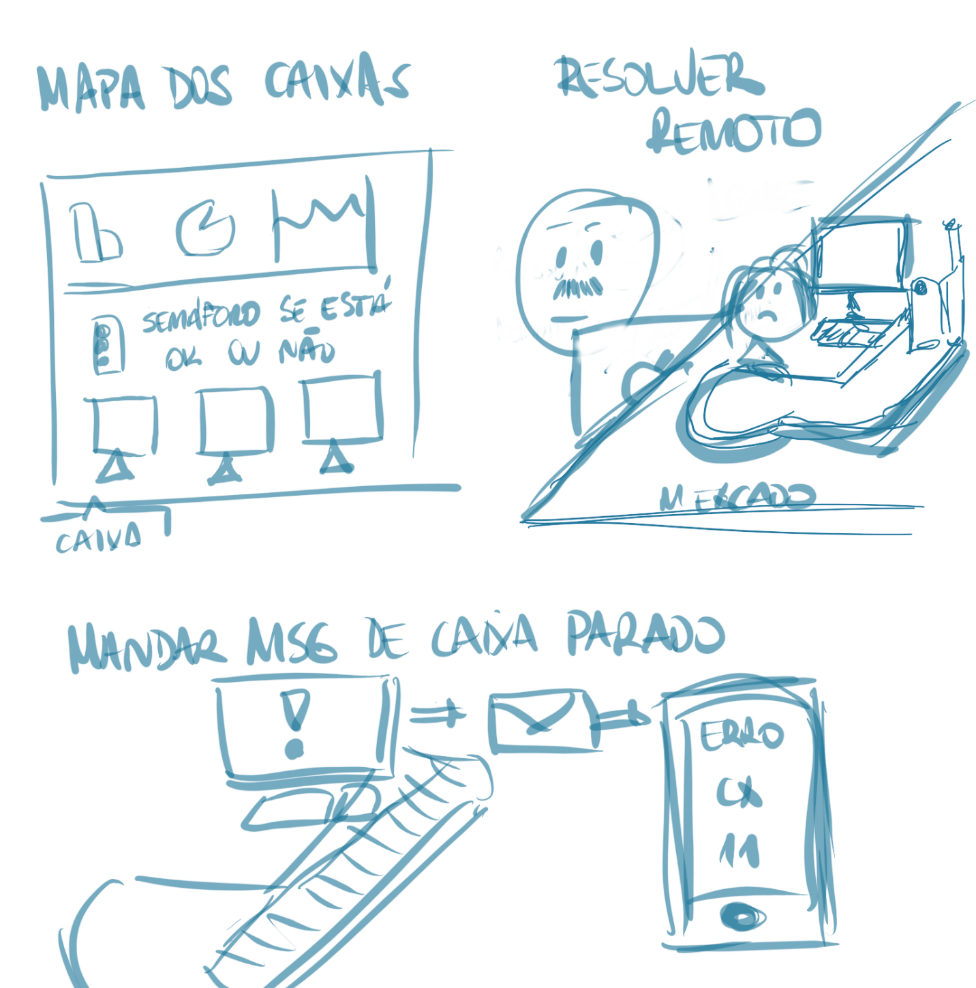 MAPA DOS CAIXAS
SEMÁFORO SE ESTÁ
OK OU NÃO
CAIXA
RESOLVER
REMOTO
MERCADO
MANDAR MSG DE CAIXA PARADO
ERRO
CX
11